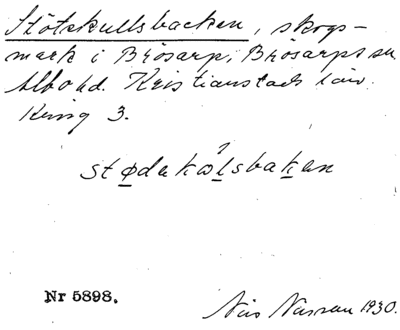 Stötskullsbacken, skogs-
mark i Brösarp, Brösarps sn
Albo hd. Kristianstads län.
Ring 3.
stødakωlsbakan
Nr 5898.
Nils 1930.